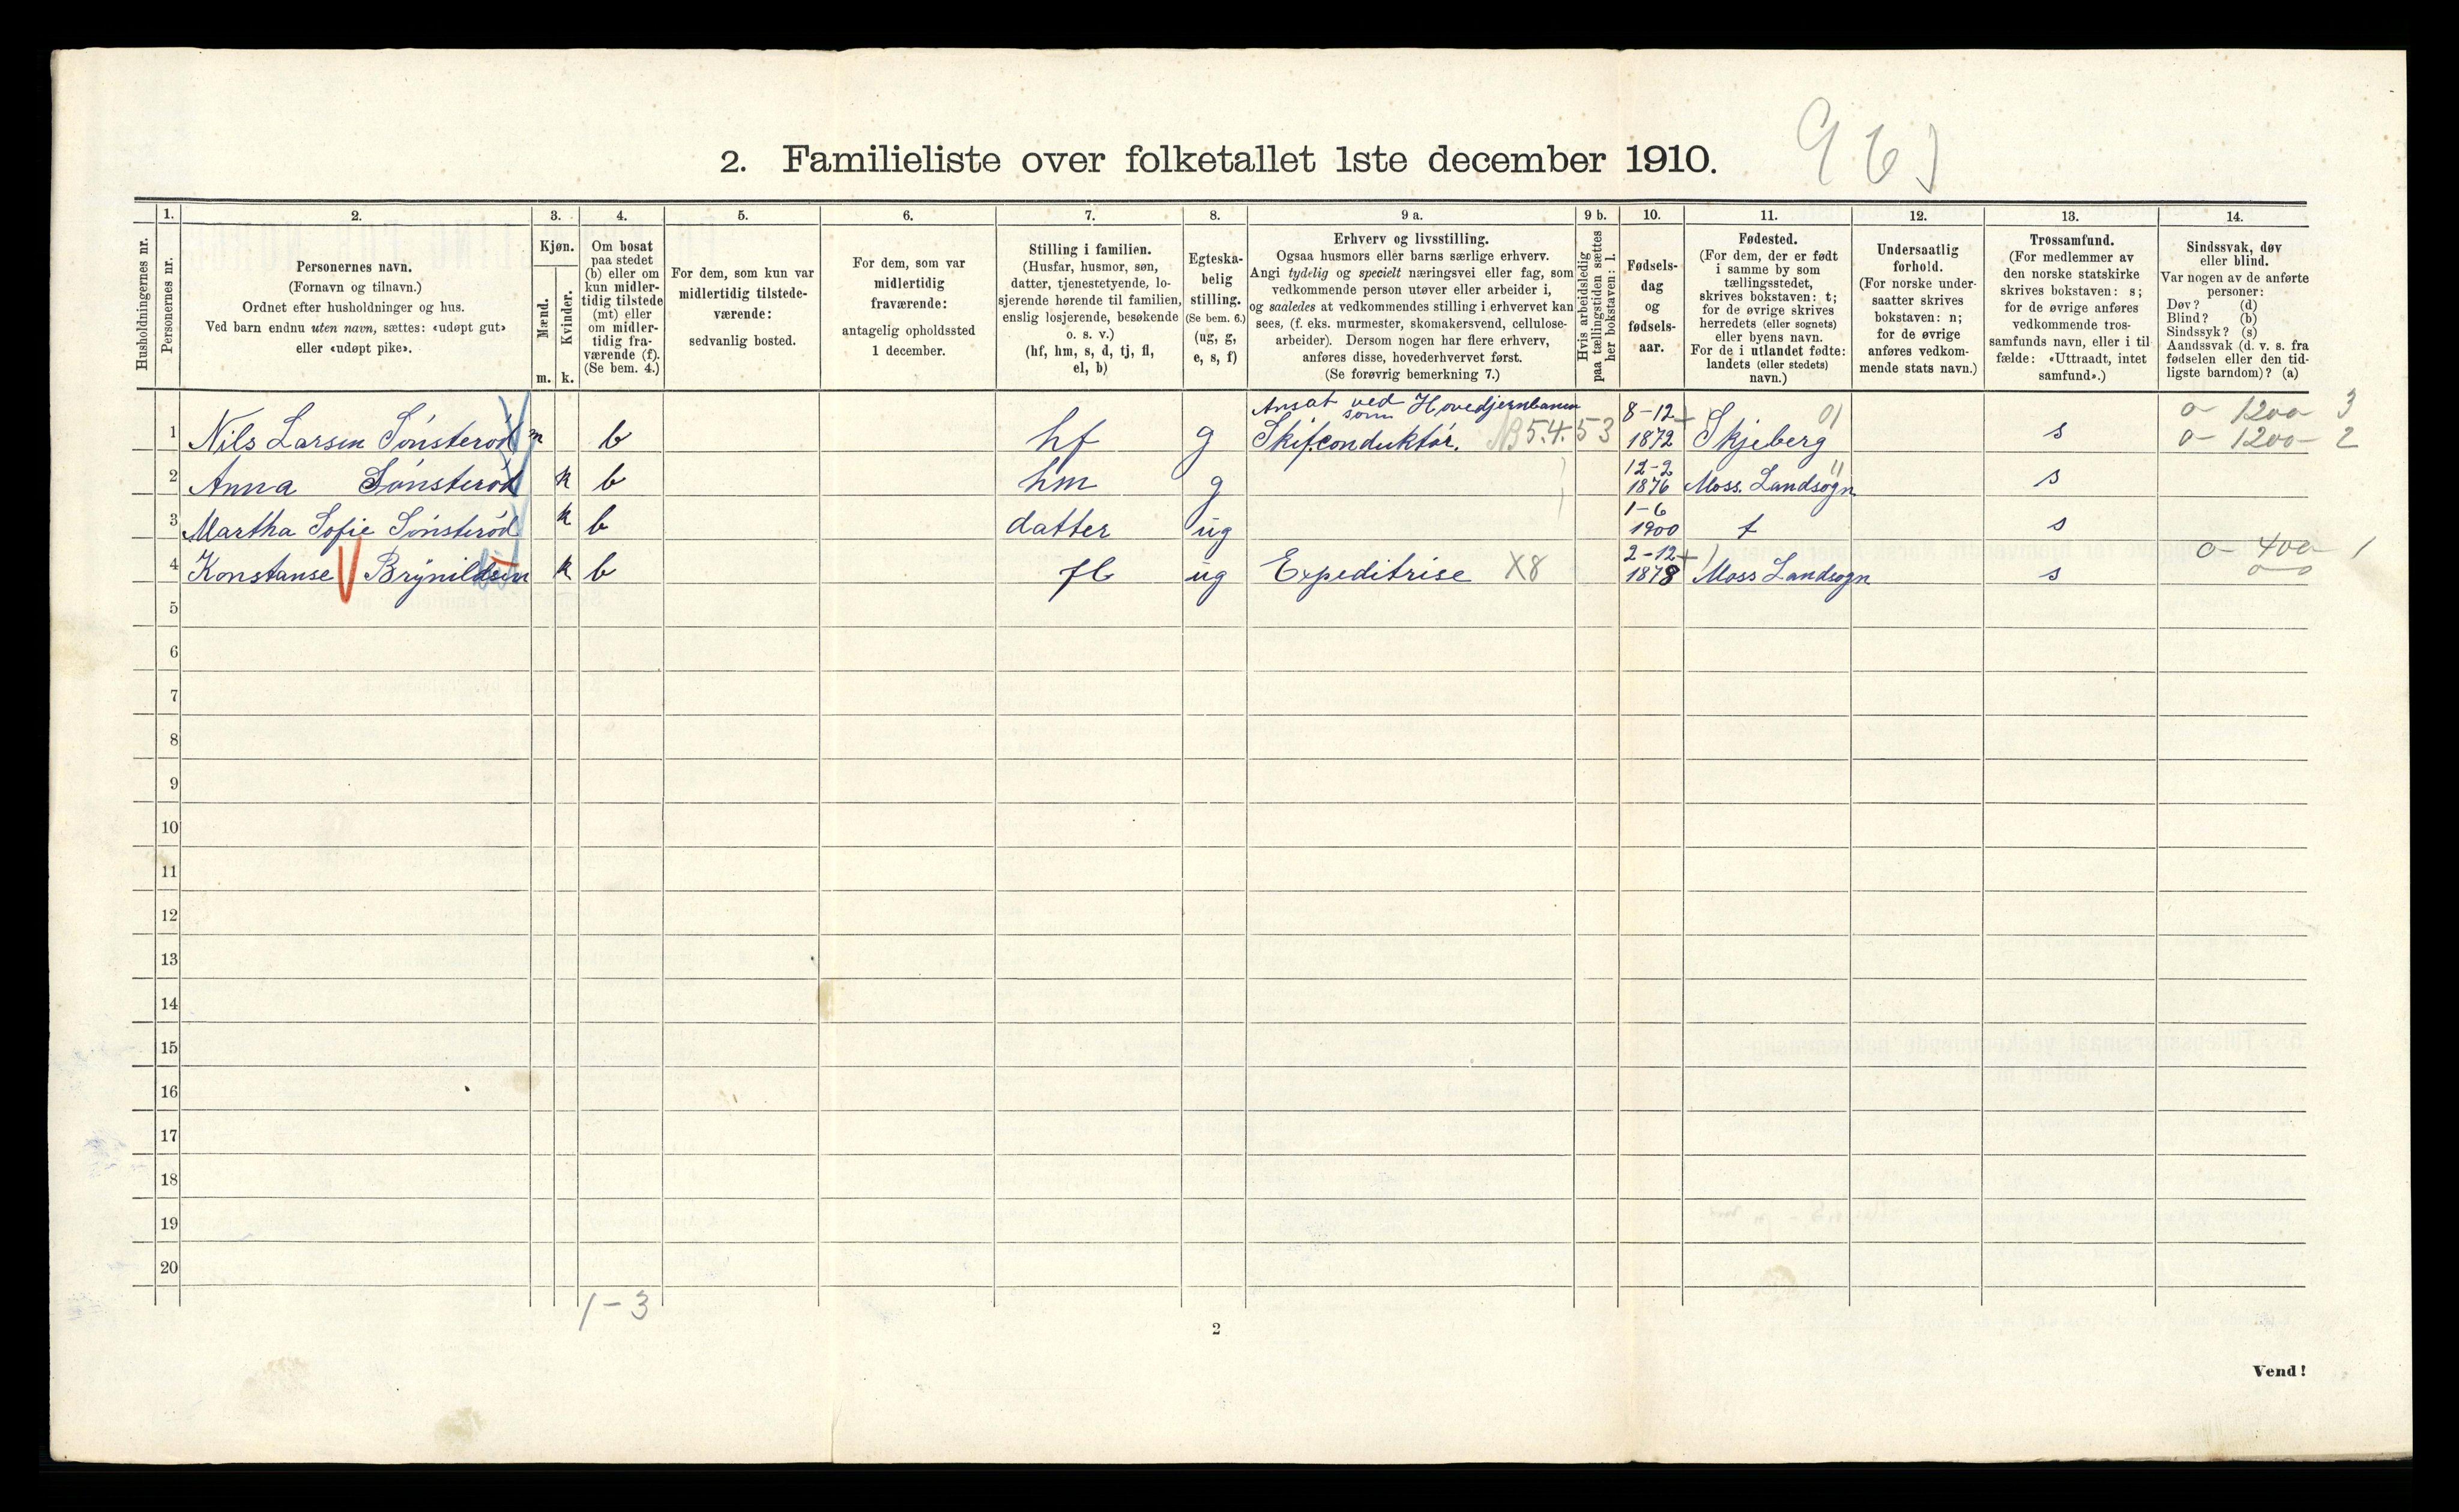 2. Familieliste over folketallet 1ste december 1910.
1. 2. 3. 4. 5. 6. 7. 8. 9 a. 9 b. 10. 11. 12. 13. 14.
Husholdningernes nr.
Personernes nr.
Personernes navn.
(Fornavn og tilnavn.)
Ordnet efter husholdninger og hus.
Ved barn endnu uten navn, sættes: «udøpt gut»
eller «udøpt pike».
Kjøn.
Mænd.
Kvinder.
m. k.
Om bosat
paa stedet
(b) eller om
kun midler-
tidig tilstede
(mt) eller
om midler-
tidig fra-
værende (f).
(Se bem. 4.)
For dem, som kun var
midlertidig tilstede-
værende:
sedvanlig bosted.
For dem, som var
midlertidig
fraværende:
antagelig opholdssted
1 december.
Stilling i familien.
(Husfar, husmor, søn,
datter, tjenestetyende, lo-
sjerende hørende til familien,
enslig losjerende, besøkende
o. s. v.)
(hf, hm, s, d, tj, fl,
el, b)
Egteska-
belig
stilling.
(Se bem. 6.)
(ug, g,
e, s, f)
Erhverv og livsstilling.
Ogsaa husmors eller barns særlige erhverv.
Angi tydelig og specielt næringsvei eller fag, som
vedkommende person utøver eller arbeider i,
og saaledes at vedkommendes stilling i erhvervet kan
sees, (f. eks. murmester, skomakersvend, cellulose-
arbeider). Dersom nogen har flere erhverv,
anføres disse, hovederhvervet først.
(Se forøvrig bemerkning 7.)
Hvis arbeidsledig
paa tællingstiden sættes
her bokstaven: l.
Fødsels-
dag
og
fødsels-
aar.
Fødested.
(For dem, der er født
i samme by som
tællingsstedet,
skrives bokstaven: t;
for de øvrige skrives
herredets (eller sognets)
eller byens navn.
For de i utlandet fødte:
landets (eller stedets)
navn.)
Undersaatlig
forhold.
(For norske under-
saatter skrives
bokstaven: n;
for de øvrige
anføres vedkom-
mende stats navn.)
Trossamfund.
(For medlemmer av
den norske statskirke
skrives bokstaven: s;
for de øvrige anføres
vedkommende tros-
samfunds navn, eller i til-
fælde: «Uttraadt, intet
samfund».)
Sindssvak, døv
eller blind.
Var nogen av de anførte
personer:
Døv? (d)
Blind? (b)
Sindssyk? (s)
Aandssvak (d. v. s. fra
fødselen eller den tid-
ligste barndom)? (a)
Ansat ved Hovedjernbanen 8-12 0 1200 3
som
1 Nils Larsen Sönsteröd m b hf g Skif.conduktör. 5.4.53 1872 Skjeberg s 0-1200-2
12-2
2 Anna Sönsteröd k b hm g 1876 Moss. Landsogn s
1-6
3 Martha Sofie Sönsteröd k b datter ug 1900 t s
2-12 0-400 1
4 Konstanse Brynildsen k b fl ug Expeditrise X8 1878 Moss Landsogn s
5
6
7
8
9
10
11
12
13
14
15
16
17
18
19
20
1-3
2
Vend!